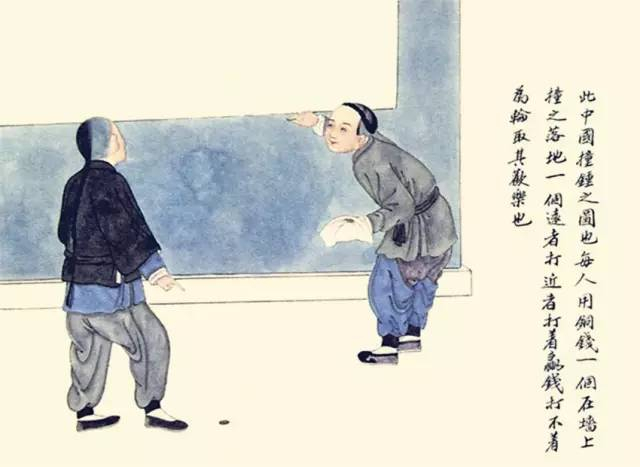 此中國撞鍾之圖也每人用銅錢一個在墻上
撞之落地一個遠者打近者打着贏錢打不着
為輸取其歡樂也